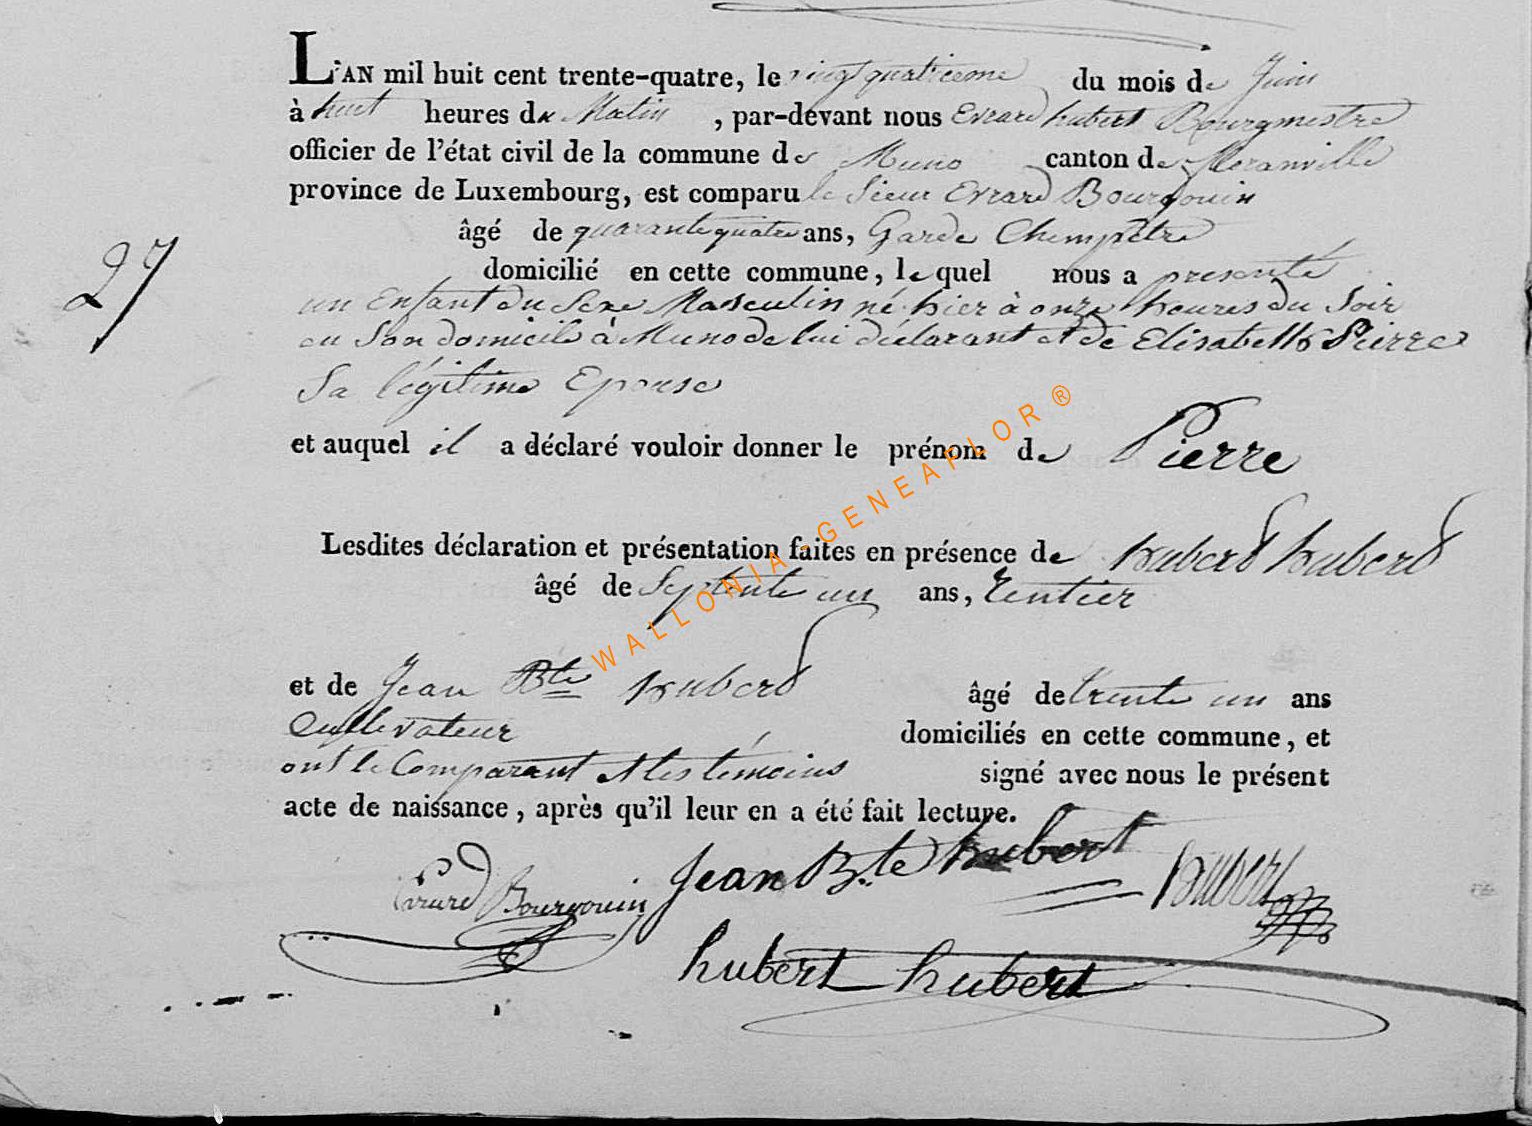 L'AN mil huit cent trente-quatre, le vingt quatrieme du mois de Juin
à huit heures du Matin , par-devant nous Evrard hubert Bourgmestre
officier de l'état civil de la commune de Muno canton de
province de Luxembourg, est comparu le Sieur Evrard Bourgouin
âgé de quarante quatre ans, Garde Champêtre
domicilié en cette commune, le quel nous a présenté
27
un Enfant du Sexe Masculin né hier à onze heures du Soir
en Son domicile à Muno de lui déclarant et de Elisabeth Pierre
Sa légitime Epouse
et auquel il a déclaré vouloir donner le prénom de Pierre
WALLONIA-GENEAFLOR ®
Lesdites déclaration et présentation faites en présence de huberd huberd
âgé de Septente un ans, Rentier
et de Jean Bte huberd âgé de trente un ans
Cultivateur domiciliés en cette commune, et
ont le Comparant et les témoins signé avec nous le présent
acte de naissance, après qu'il leur en a été fait lecture.
Evrard Bourgouin Jean Bte hubert hubert
hubert hubert